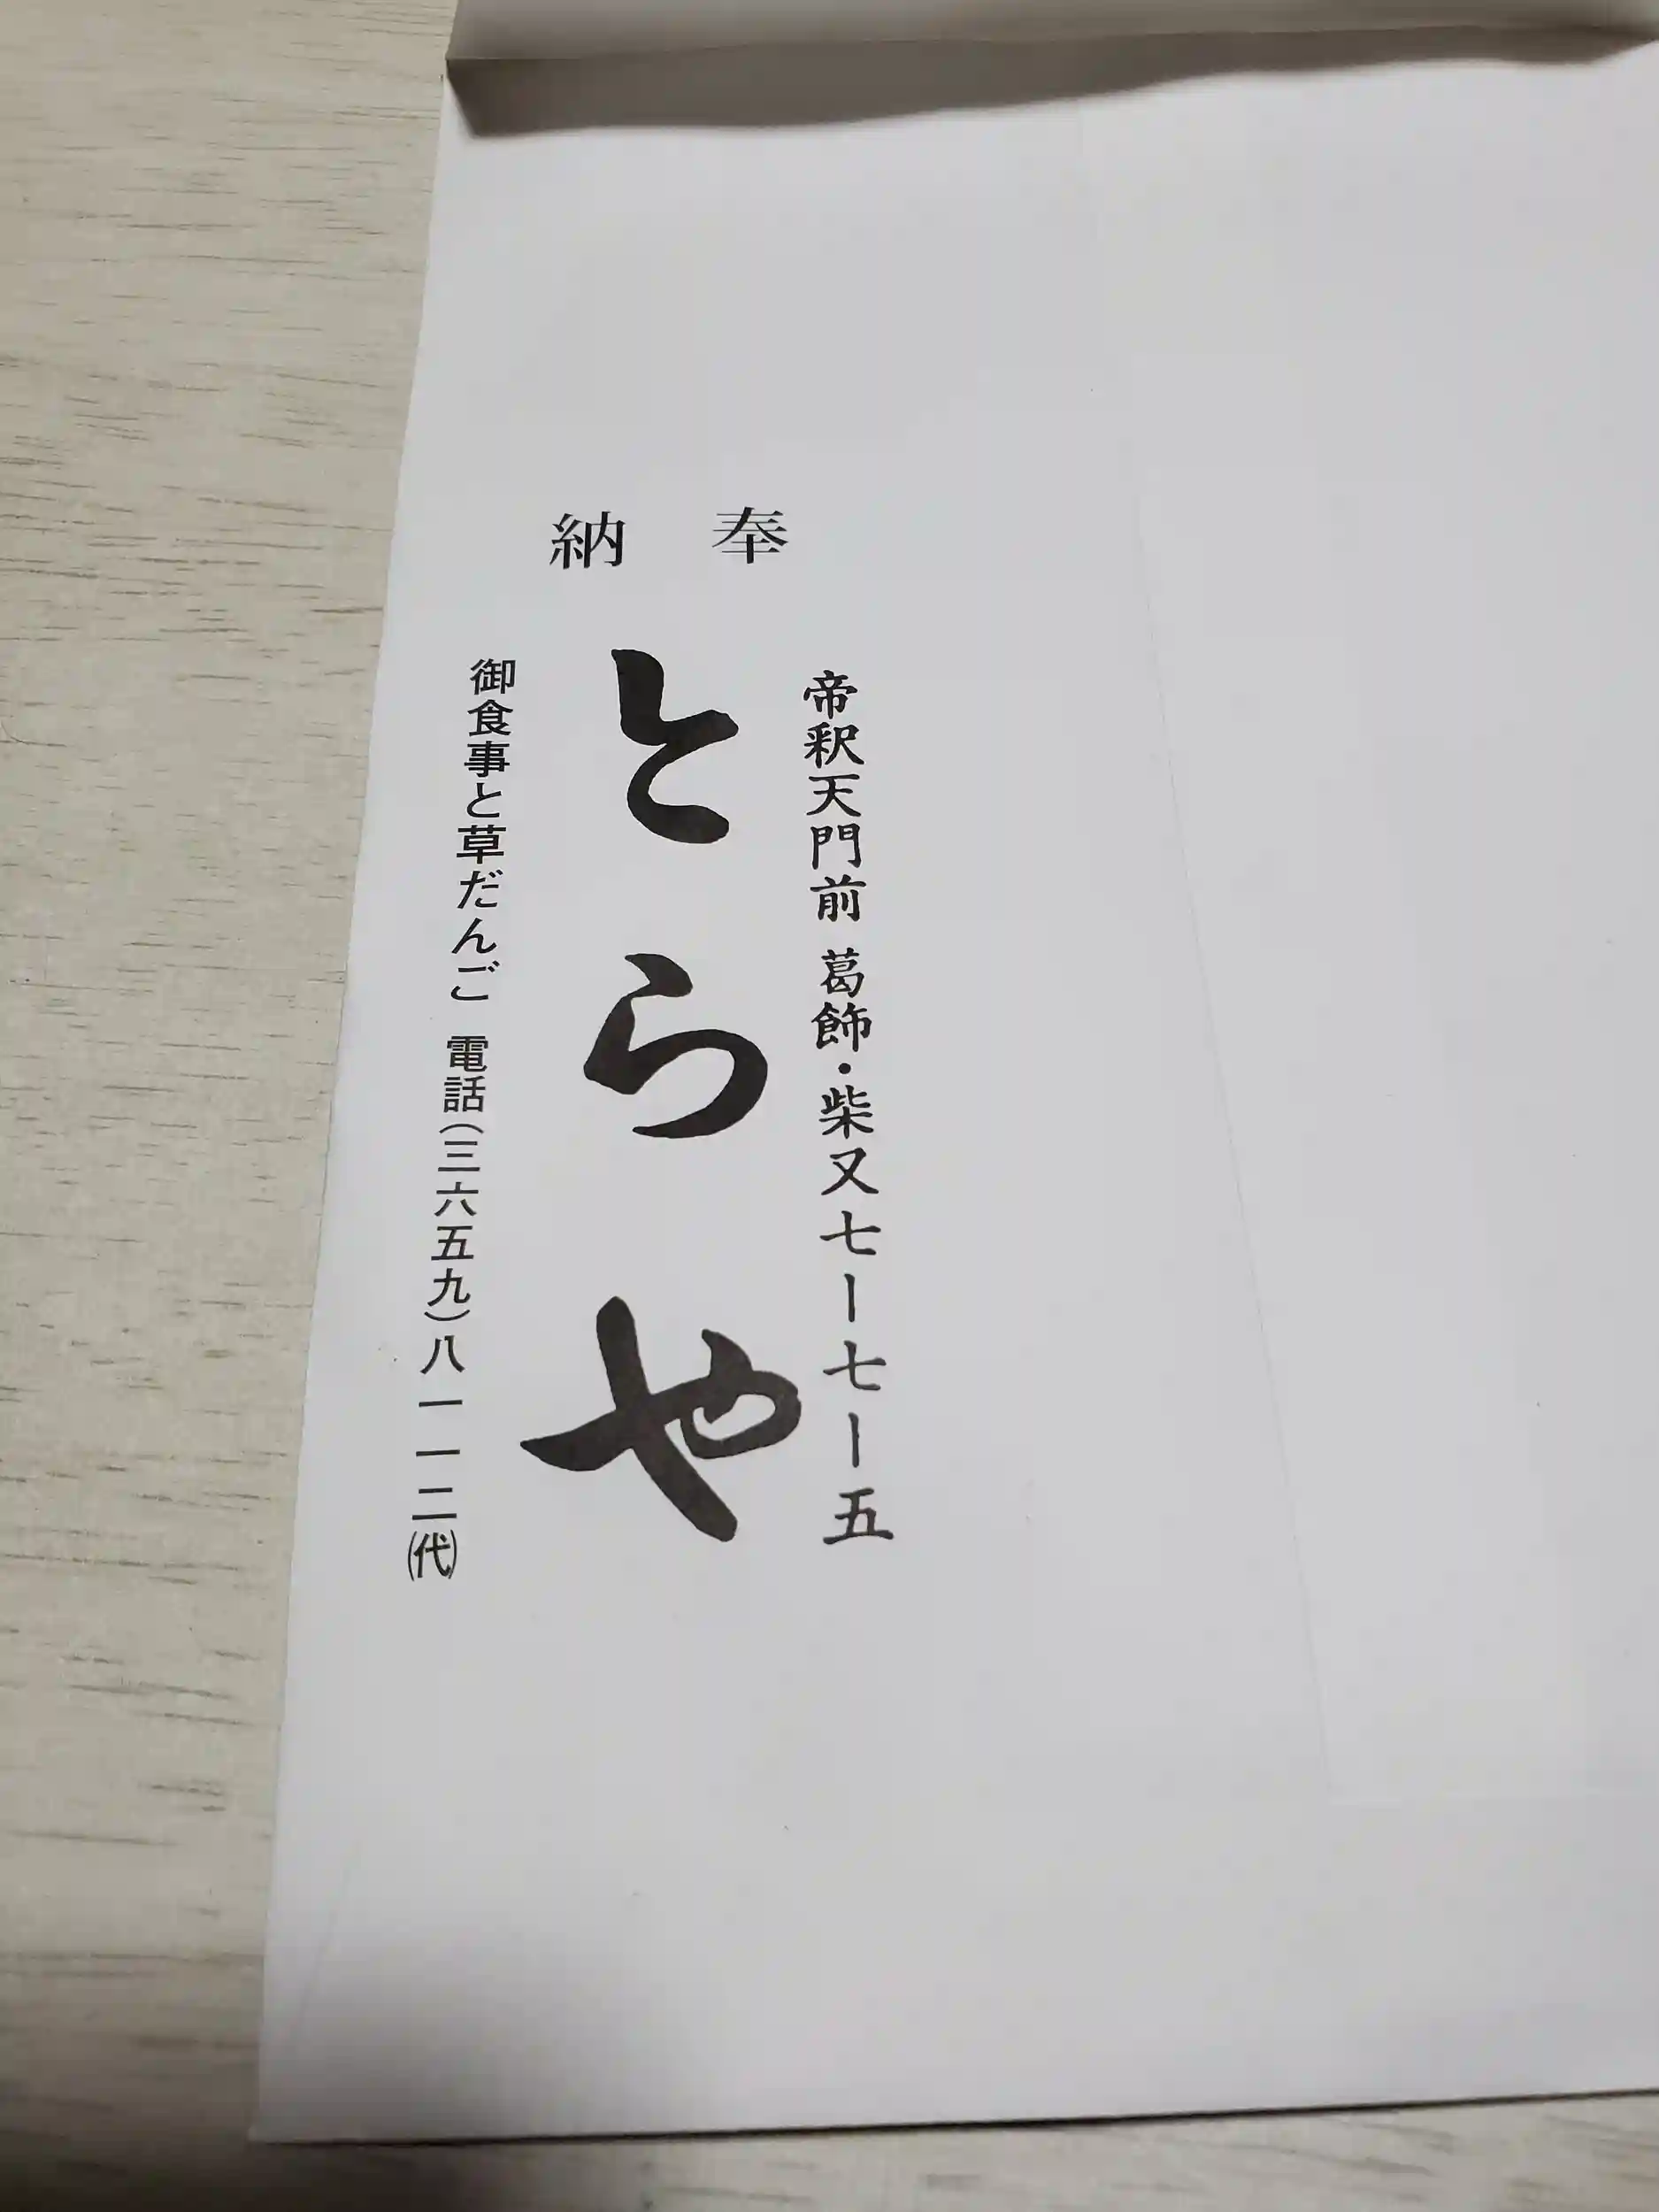 奉納
帝釈天門前 葛飾・柴又七ー七ー五
とらや
御食事と草だんご 電話(三六五九)八一一二(代)